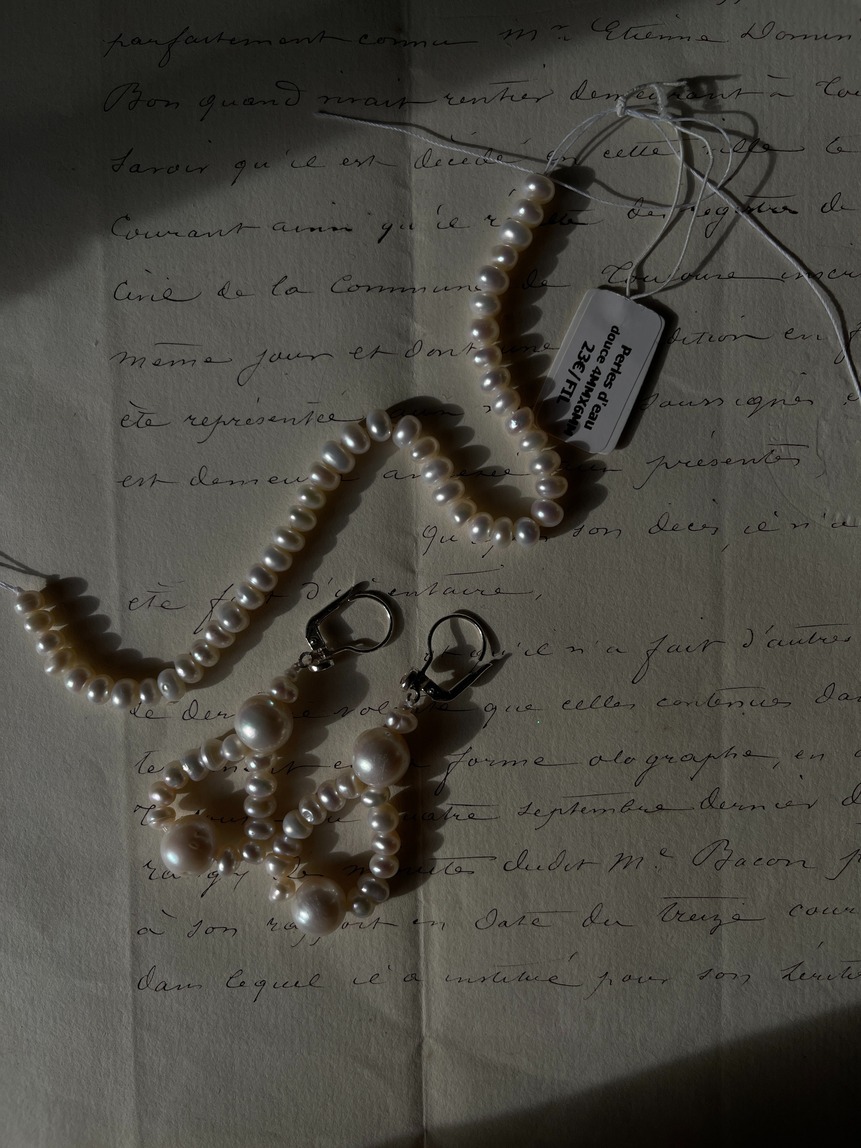 parfaitement connu Mr Etienne Domin
Bon quand vivait rentier demeurant à Tou
savoir qu'il est décédé en cette ville le
Courant ainsi qu'il résulte des registres de
Civil de la Commune de Toulouse inscri
même jour et dont une dition en f
été représentée soussignés
est demeur an présentes
Qu' son décès, il n'a
été f d' entaire,
qu'il n'a fait d'autres
de der vol que celles contenues dan
te en forme olographe, en
quatre septembre dernier d
minutes dudit Me Bacon
à son rapport en date du treize cour
dans lequel il a institué pour son hériti
Perles d'eau
douce 4MMX6MM
23€/FIL